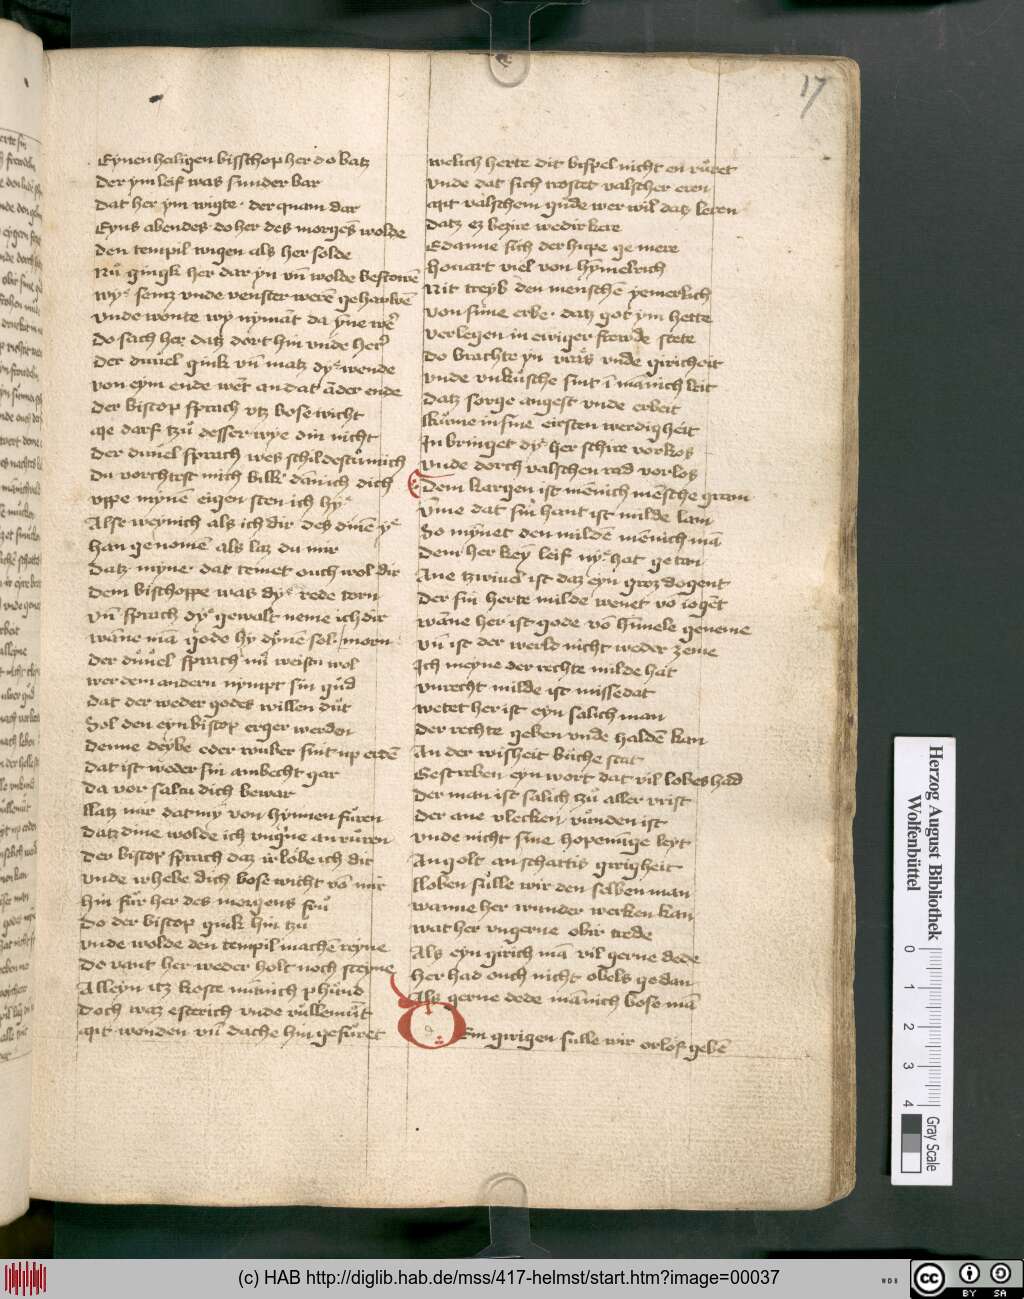 17
Eynen heiligen bisschop her do batz
Der ym leif was sunder bar
Dat her ym wigte · der quam dar
Eyns abendes · do her des morgēs wolde
Den tempil wigen als her solde
Nů gingk her dar yn vn̄ wolde bestowē
Wy sentz vnde venster werē gehauwē
Vnde wonte wy nymāt da yne wer
Do sach her datz dort hin vnde her
Der duuel gink vn̄ matz dy wende
Von eym ende wēt an dat āder ende
Der biscop sprach vtz bose wicht
Me darf tzů desser wye din nicht
Der duuel sprach wes schildestu mich
Du vorchtest mich bilk dān ich dich
Vppe mynē eigen sten ich hy
Also weynich als ich dir des dinē y
han genomē als laz du mir
Datz myne · dat temet ouch wol dir
Dem bischoppe was dy rede torn
Vn̄ sprach dy gewalt neme ich dir
Wāne mā gode hy dynē sol morn
Der důuel sprach nů weistu wol
Wer dem andern nympt sin gůd
Dat der weder godes willen důt
Sol den eyn biscop erger werden
Denne deybe eder rouber sint up erdē
Dat ist weder sin ambecht gar
Da vor saltu dich bewar
Latz mir dat my von hynnen fůren
Datz dine wolde ich vngerne an růren
Der biscop sprach daz irlobe ich dir
Vnde irhebe dich bose wicht vō mir
Hin fůr her des morgens frů
Do der biscop gink hin tzu
Vnde wolde den tempil machē reyne
Do vant her weder holt noch steyne
Alleyn itz koste mānich phund
Doch waz esterich vnde vullemůt
Mit wenden vn̄ dache hin gefůret
Welich herte dit bispel nicht en růret
Vnde dat sich trostet valscher eren
Mit valschem gude wer wil datz leren
Datz ez bezite wedir kere
E danne sich der hupe ge mere
Houart viel von hymelrich
Nit treyb den menschē yemerlich
Von sime erbe · datz got ym hette
Verlegen in ewiger frewde stete
Do brachte yn vraz vnde giricheit
Vnde vnkůsche sint ī manich leit
Datz sorge angest vnde erbeit
Kume in sine eirsten werdigheit
In bringet dy her schire vorkos
Vnde dorch valschen rad vorlos
Dem kargen ist mēnich mēsche gram
Vme dat sin hant ist milde lam
So mynet den mildē mēnich mā
Dem her key leif ny hat getan
Ane tzwiuel ist daz eyn groz dogent
Der sin herte milde wenet vō iogēt
Wāne her ist gode vō hīmele geneme
Vn̄ ist der werld nicht weder zeme
Ich meyne der rechte milde hat
Vnrecht milde ist missedat
Wetet her ist eyn salich man
Der rechte geben vnde haldē kan
An der wisheit bůche stat
Gescreben eyn wort dat vil lobes had
Der man ist salich tzů aller vrist
Der ane vlecken vůnden ist
Vnde nicht sine hopenůge leyt
An golt an schattis girigheit
Loben sůlle wir den selben man
Wanne her wunder werken kan
Wat her vngerne obir trede
Als eyn girich mā vil gerne dede
Her had ouch nicht obels gedan
Als gerne dede mānich bose mā
Dem girigen sulle wir orlof gebē
Herzog August Bibliothek
Wolfenbüttel
0 1 2 3 4
Gray Scale
(c) HAB http://diglib.hab.de/mss/417-helmst/start.htm?image=00037
WDB
cc BY SA